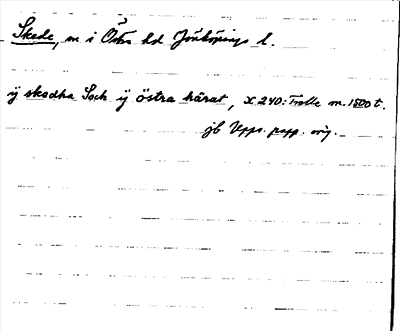 Skede, sn i Östra hd Jönköpings l.
ij skedha Soch ij östra härat, X 240: Trolle m. 1500 t.
jb Upps. papp. orig.